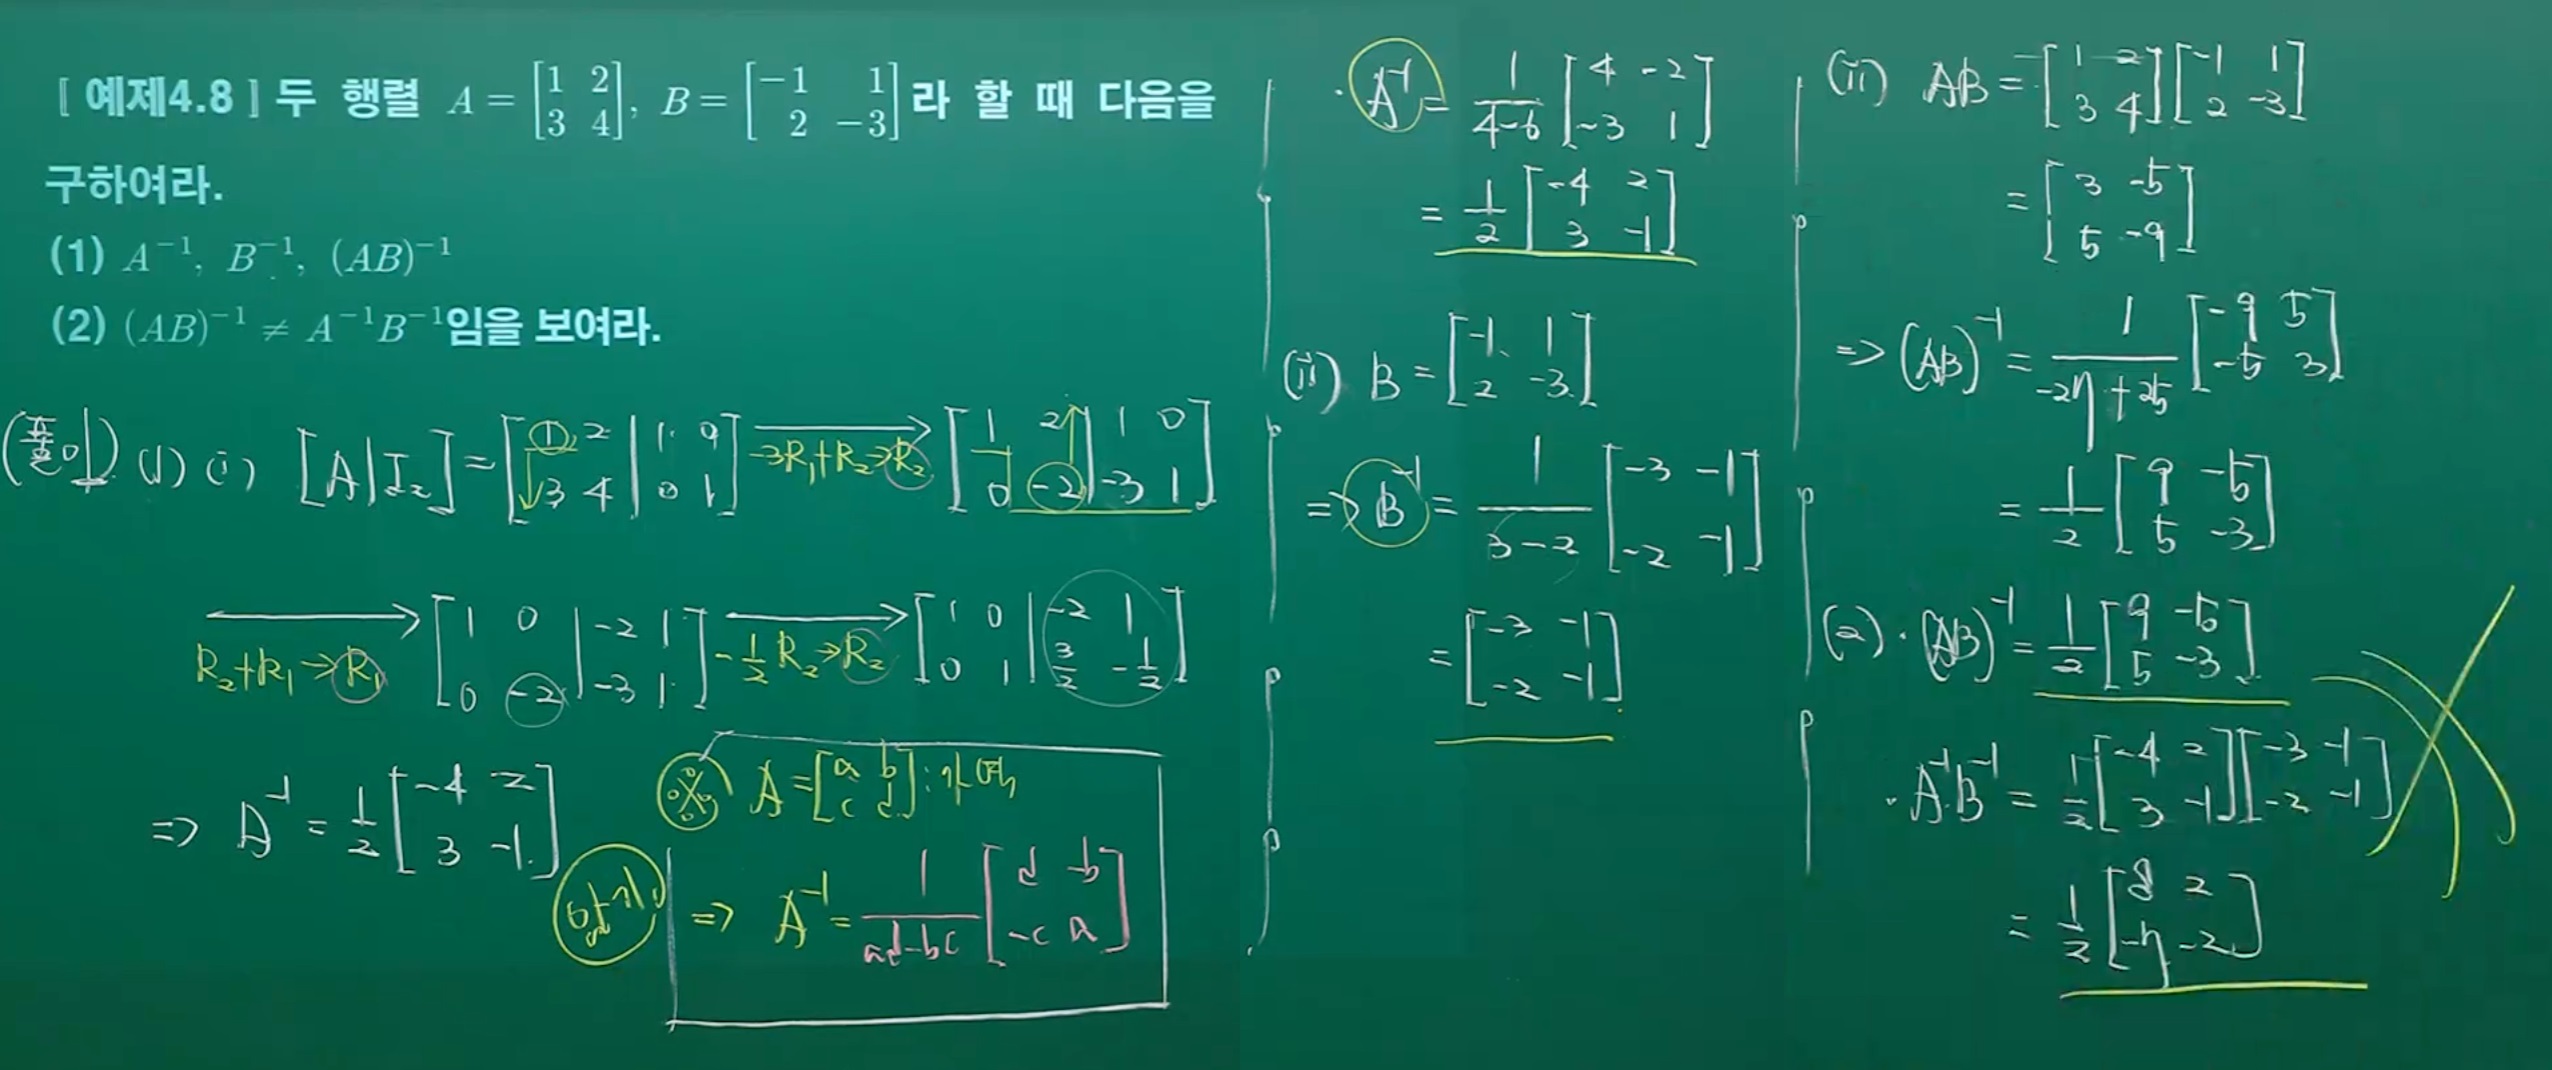 [예제4.8] 두 행렬 A = [1 2; 3 4], B = [-1 1; 2 -3]라 할 때 다음을
구하여라.
(1) A⁻¹, B⁻¹, (AB)⁻¹
(2) (AB)⁻¹ ≠ A⁻¹B⁻¹임을 보여라.
(풀이) (1) (i) [A|I₂] = [① 2 | 1 0; 3 4 | 0 1] -3R₁+R₂→R₂ [1 2 | 1 0; 0 -2 | -3 1]
R₂+R₁→R₁ [1 0 | -2 1; 0 -2 | -3 1] -1/2 R₂→R₂ [1 0 | -2 1; 0 1 | 3/2 -1/2]
⇒ A⁻¹ = 1/2 [-4 2; 3 -1]
※ A = [a b; c d] : 가역
암기! ⇒ A⁻¹ = 1/(ad-bc) [d -b; -c a]
· A⁻¹ = 1/(4-6) [4 -2; -3 1]
= 1/2 [-4 2; 3 -1]
(ii) B = [-1 1; 2 -3]
⇒ B⁻¹ = 1/(3-2) [-3 -1; -2 -1]
= [-3 -1; -2 -1]
(iii) AB = [1 2; 3 4][-1 1; 2 -3]
= [3 -5; 5 -9]
⇒ (AB)⁻¹ = 1/(-27+25) [-9 5; -5 3]
= 1/2 [9 -5; 5 -3]
(2) · (AB)⁻¹ = 1/2 [9 -5; 5 -3]
· A⁻¹B⁻¹ = 1/2 [-4 2; 3 -1][-3 -1; -2 -1]
= 1/2 [8 2; -7 -2]